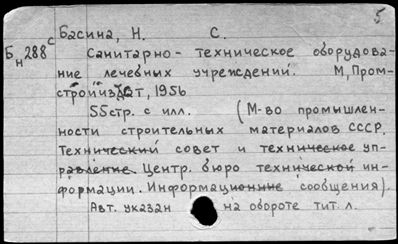 5
Басина, Н. С.
Бн288 с Санитарно-техническое оборудова-
ние лечебных учреждений. М, Пром-
стройиздат, 1956
55стр. с илл. (М-во промышлен-
ности строительных материалов СССР.
Технический совет и техническое уп-
равление. Центр. бюро технической ин-
формации. Информационные сообщения).
Авт. указан на обороте тит. л.